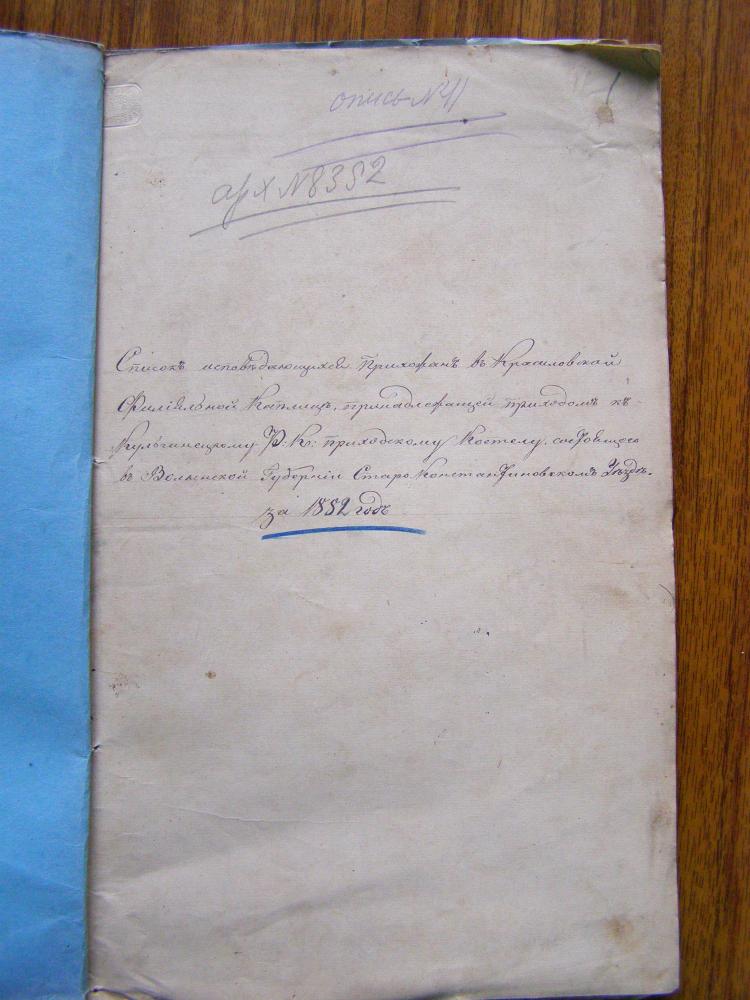 опись №41
1
арх №8352
Списокъ исповѣдающихся Прихожанъ въ Красиловской
Филіяльной Каплицѣ, принадлежащей приходомъ къ
Кульчинецкому Р: К: приходскому Костелу, состоящего
въ Волынской Губерніи Старо Константиновскомъ Уѣздѣ.
за 1852 годъ